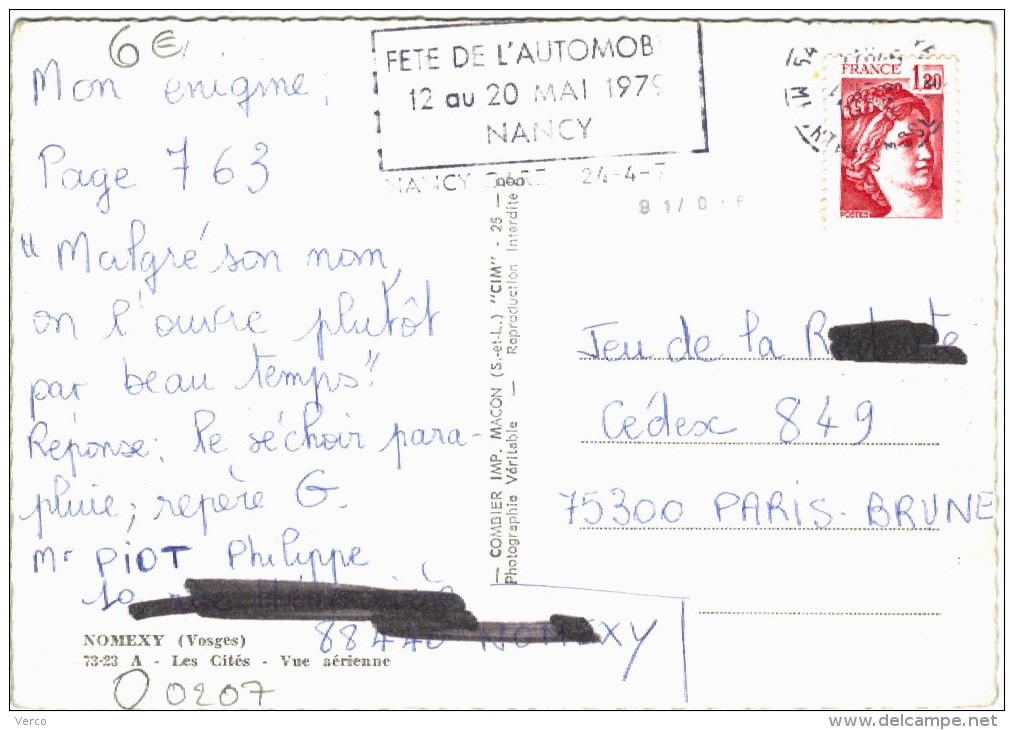 6€
Mon enigme;
Page 763
"Malgré son nom,
on l'ouvre plutôt
par beau temps."
Réponse; le séchoir para-
pluie; repère G.
Mr PIOT Philippe
10
88440 NOMEXY
NOMEXY (Vosges)
73-23 A - Les Cités - Vue aérienne
0207
FETE DE L'AUTOMOB
12 au 20 MAI 1979
NANCY
NANCY GARE 24-4-7
FRANCE 1,20
POSTES
— COMBIER IMP. MACON (S.-et-L.) "CIM" - 25 -
Photographie Véritable — Reproduction Interdite
Jeu de la
Cédex 849
75300 PARIS-BRUNE
Verco
www.delcampe.net